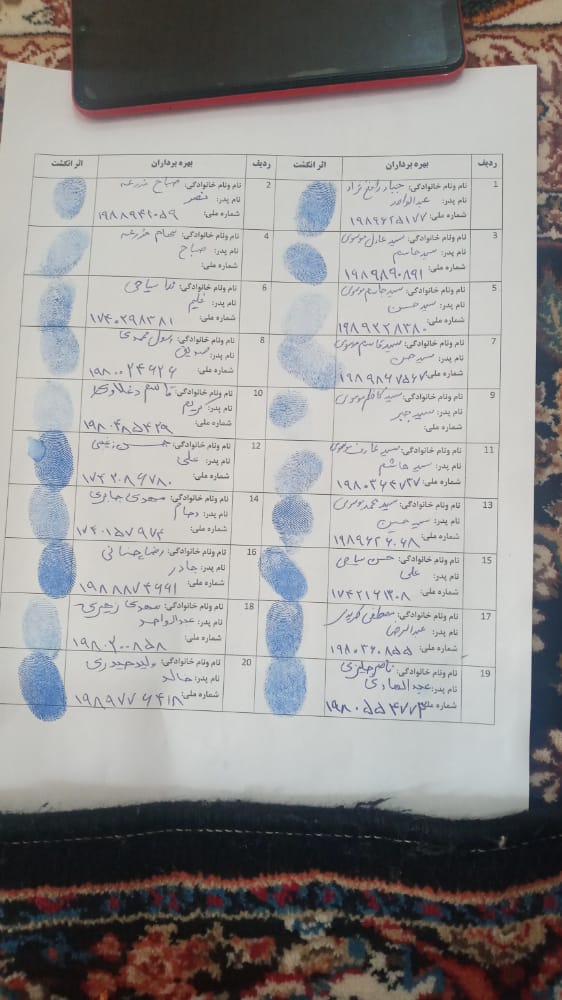 ردیف بهره برداران اثر انگشت ردیف بهره برداران اثر انگشت
1 نام ونام خانوادگی: جبار رافع نژاد
نام پدر: عبدالواحد
شماره ملی: ۱۹۸۹۶۲۵۱۷۷
2 نام ونام خانوادگی: صباح مزرعه
نام پدر:
شماره ملی: ۱۹۸۸۹۴۲۰۵۹
3 نام ونام خانوادگی: سید عادل موسوی
نام پدر: سید جاسم
شماره ملی: ۱۹۸۹۸۹۰۸۹۱
4 نام ونام خانوادگی: مزرعه
نام پدر: صباح
شماره ملی:
5 نام ونام خانوادگی: سید جاسم موسوی
نام پدر: سید حسن
شماره ملی: ۱۹۸۹۲۲۸۲۸۰
6 نام ونام خانوادگی: سیاحی
نام پدر:
شماره ملی: ۱۷۴۰۲۹۸۳۸۱
7 نام ونام خانوادگی: سید قاسم موسوی
نام پدر: سید حسن
شماره ملی: ۱۹۸۹۸۶۷۵۶۷
8 نام ونام خانوادگی: رسول محمدی
نام پدر:
شماره ملی: ۱۹۸۰۰۲۴۶۲۶
9 نام ونام خانوادگی: سید کاظم موسوی
نام پدر: سید جبر
شماره ملی:
10 نام ونام خانوادگی: قاسم دغلاوی
نام پدر: کریم
شماره ملی: ۱۹۸۰۴۸۵۴۲۹
11 نام ونام خانوادگی: سید عارف موسوی
نام پدر: سید هاشم
شماره ملی: ۱۹۸۰۳۶۴۷۳۷
12 نام ونام خانوادگی:
نام پدر: علی
شماره ملی: ۱۷۴۲۰۸۶۷۸۰
13 نام ونام خانوادگی: سید محمد موسوی
نام پدر: سید حسین
شماره ملی: ۱۹۸۹۶۲۶۰۶۸
14 نام ونام خانوادگی: مهدی جابری
نام پدر: دحام
شماره ملی: ۱۷۴۰۱۵۷۹۷۴
15 نام ونام خانوادگی: حسن سیاحی
نام پدر: علی
شماره ملی: ۱۷۴۲۱۶۱۳۰۸
16 نام ونام خانوادگی: رضا
نام پدر: جادر
شماره ملی: ۱۹۸۸۸۷۴۶۹۱
17 نام ونام خانوادگی: مصطفی
نام پدر: عبدالرضا
شماره ملی: ۱۹۸۰۳۶۰۸۵۵
18 نام ونام خانوادگی: مهدی زهیری
نام پدر: عبدالواحد
شماره ملی: ۱۹۸۰۲۰۰۸۵۸
19 نام ونام خانوادگی: ناصر
نام پدر: عبدالهادی
شماره ملی: ۱۹۸۰۵۵۴۷۷۳
20 نام ونام خانوادگی: ولید حیدری
نام پدر: خالد
شماره ملی: ۱۹۸۹۷۷۶۴۱۸